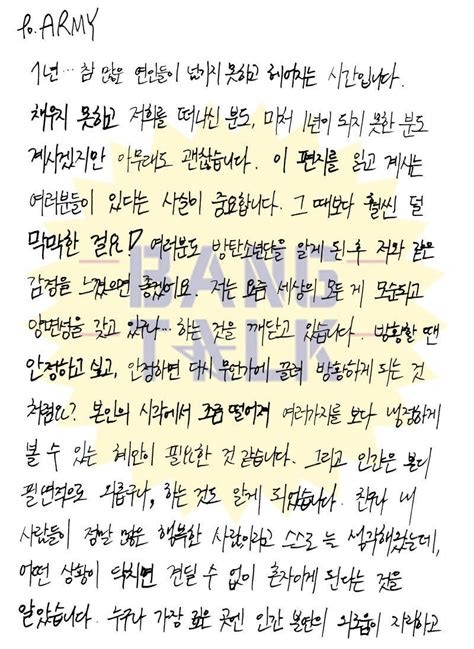 to. ARMY
1년… 참 많은 연인들이 넘기지 못하고 헤어지는 시간입니다.
채우지 못하고 저희를 떠나신 분도, 미처 1년이 되지 못한 분도
계시겠지만 아무래도 괜찮습니다. 이 편지를 읽고 계시는
여러분들이 있다는 사실이 중요합니다. 그 때보다 훨씬 덜
막막한 걸요♡ 여러분도 방탄소년단을 알게 된 후 저와 같은
감정을 느꼈으면 좋겠어요. 저는 요즘 세상의 모든 게 모순되고
양면성을 갖고 있구나… 하는 것을 깨닫고 있습니다. 방황할 땐
안정하고 싶고, 안정하면 다시 무언가에 끌려 방황하게 되는 것
처럼요? 본인의 시각에서 조금 떨어져 여러가지를 보다 냉정하게
볼 수 있는 혜안이 필요한 것 같습니다. 그리고 인간은 본디
필연적으로 외롭구나, 하는 것도 알게 되었습니다. 친구나 내
사람들이 정말 많은 행복한 사람이라고 스스로 늘 생각해왔는데,
어떤 상황이 닥치면 견딜 수 없이 혼자이게 된다는 것을
알았습니다. 누구나 가장 깊은 곳엔 인간 본연의 외로움이 자리하고
BANG
TALK